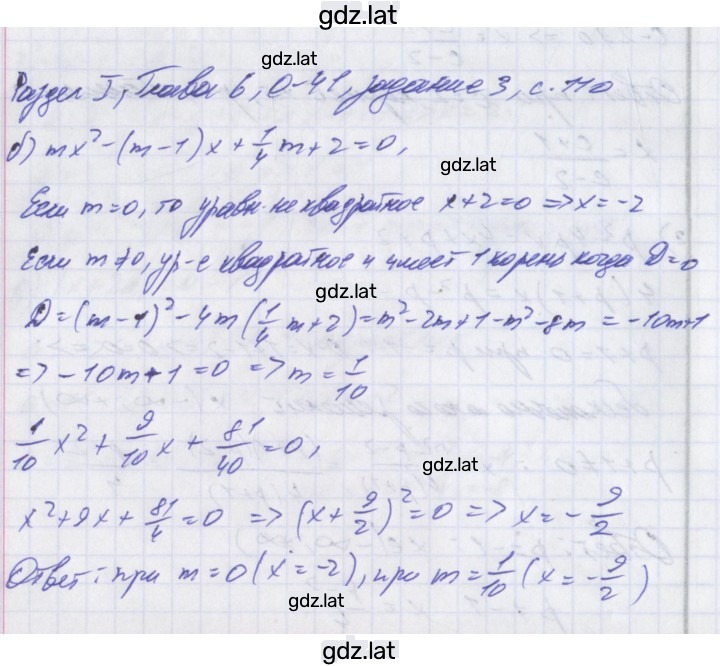 gdz.lat
gdz.lat
Раздел I, Глава 6, О-41, задание 3, с. 110
б) mx² - (m-1)x + 1/4 m + 2 = 0,
gdz.lat
Если m=0, то уравн. не квадратное x+2=0 => x=-2
Если m≠0, ур-е квадратное и имеет 1 корень когда D=0
gdz.lat
D = (m-1)² - 4m(1/4 m + 2) = m² - 2m + 1 - m² - 8m = -10m+1
=> -10m+1 = 0 => m = 1/10
1/10 x² + 9/10 x + 81/40 = 0,
gdz.lat
x² + 9x + 81/4 = 0 => (x + 9/2)² = 0 => x = - 9/2
Ответ: при m=0 (x=-2), при m = 1/10 (x = - 9/2)
gdz.lat
gdz.lat